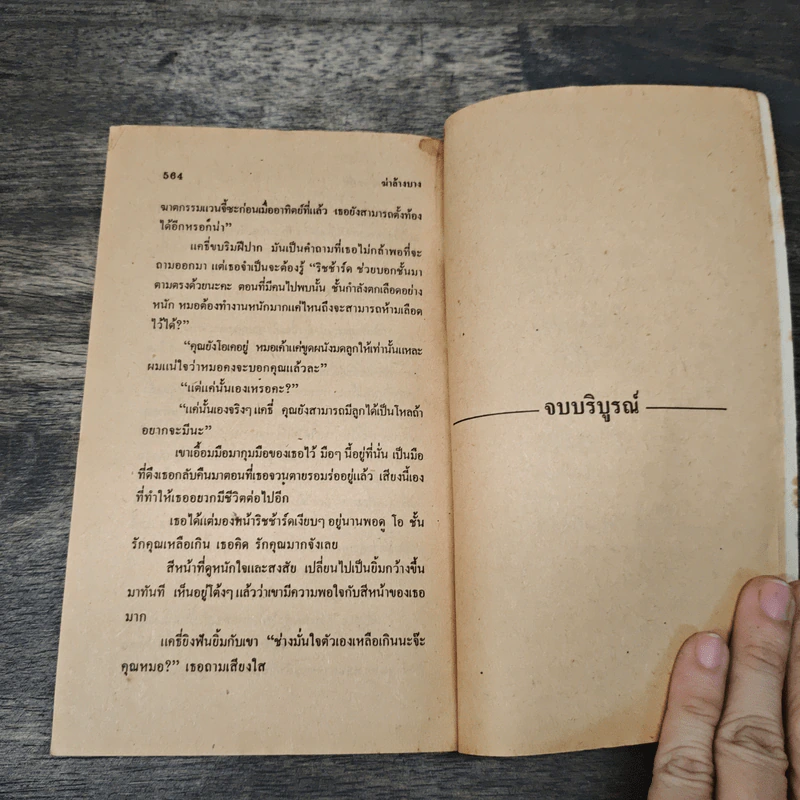 564
ฆ่าล้างบาง
ฆาตกรรมแวนซี่ซะก่อนเมื่ออาทิตย์ที่แล้ว เธอยังสามารถตั้งท้อง
ได้อีกหรอก็น่า”
แคธี่ขบริมฝีปาก มันเป็นคำถามที่เธอไม่กล้าพอที่จะ
ถามออกมา แต่เธอจำเป็นจะต้องรู้ “ริชช้าร์ด ช่วยบอกชั้นมา
ตามตรงด้วยนะคะ ตอนที่มีคนไปพบนั้น ชั้นกำลังตกเลือดอย่าง
หนัก หมอต้องทำงานหนักมากแค่ไหนถึงจะสามารถห้ามเลือด
ไว้ได้?”
“คุณยังโอเคอยู่ หมอเค้าแค่ขูดผนังมดลูกให้เท่านั้นแหละ
ผมแน่ใจว่าหมอคงจะบอกคุณแล้วละ”
“แต่แค่นั้นเองเหรอคะ?”
“แค่นั้นเองจริงๆ แคธี่ คุณยังสามารถมีลูกได้เป็นโหลถ้า
อยากจะมีนะ”
เขาเอื้อมมือมากุมมือของเธอไว้ มือๆ นี้อยู่ที่นั่น เป็นมือ
ที่ดึงเธอกลับคืนมาตอนที่เธอจวนตายรอมร่ออยู่แล้ว เสียงนี้เอง
ที่ทำให้เธออยากมีชีวิตต่อไปอีก
เธอได้แต่มองหน้าริชช้าร์ดเงียบๆ อยู่นานพอดู โอ ชั้น
รักคุณเหลือเกิน เธอคิด รักคุณมากจังเลย
สีหน้าที่ดูหนักใจและสงสัย เปลี่ยนไปเป็นยิ้มกว้างขึ้น
มาทันที เห็นอยู่โต้งๆ แล้วว่าเขามีความพอใจกับสีหน้าของเธอ
มาก
แคธี่ยิงฟันยิ้มกับเขา “ช่างมั่นใจตัวเองเหลือเกินนะจ๊ะ
คุณหมอ?” เธอถามเสียงใส
จบบริบูรณ์